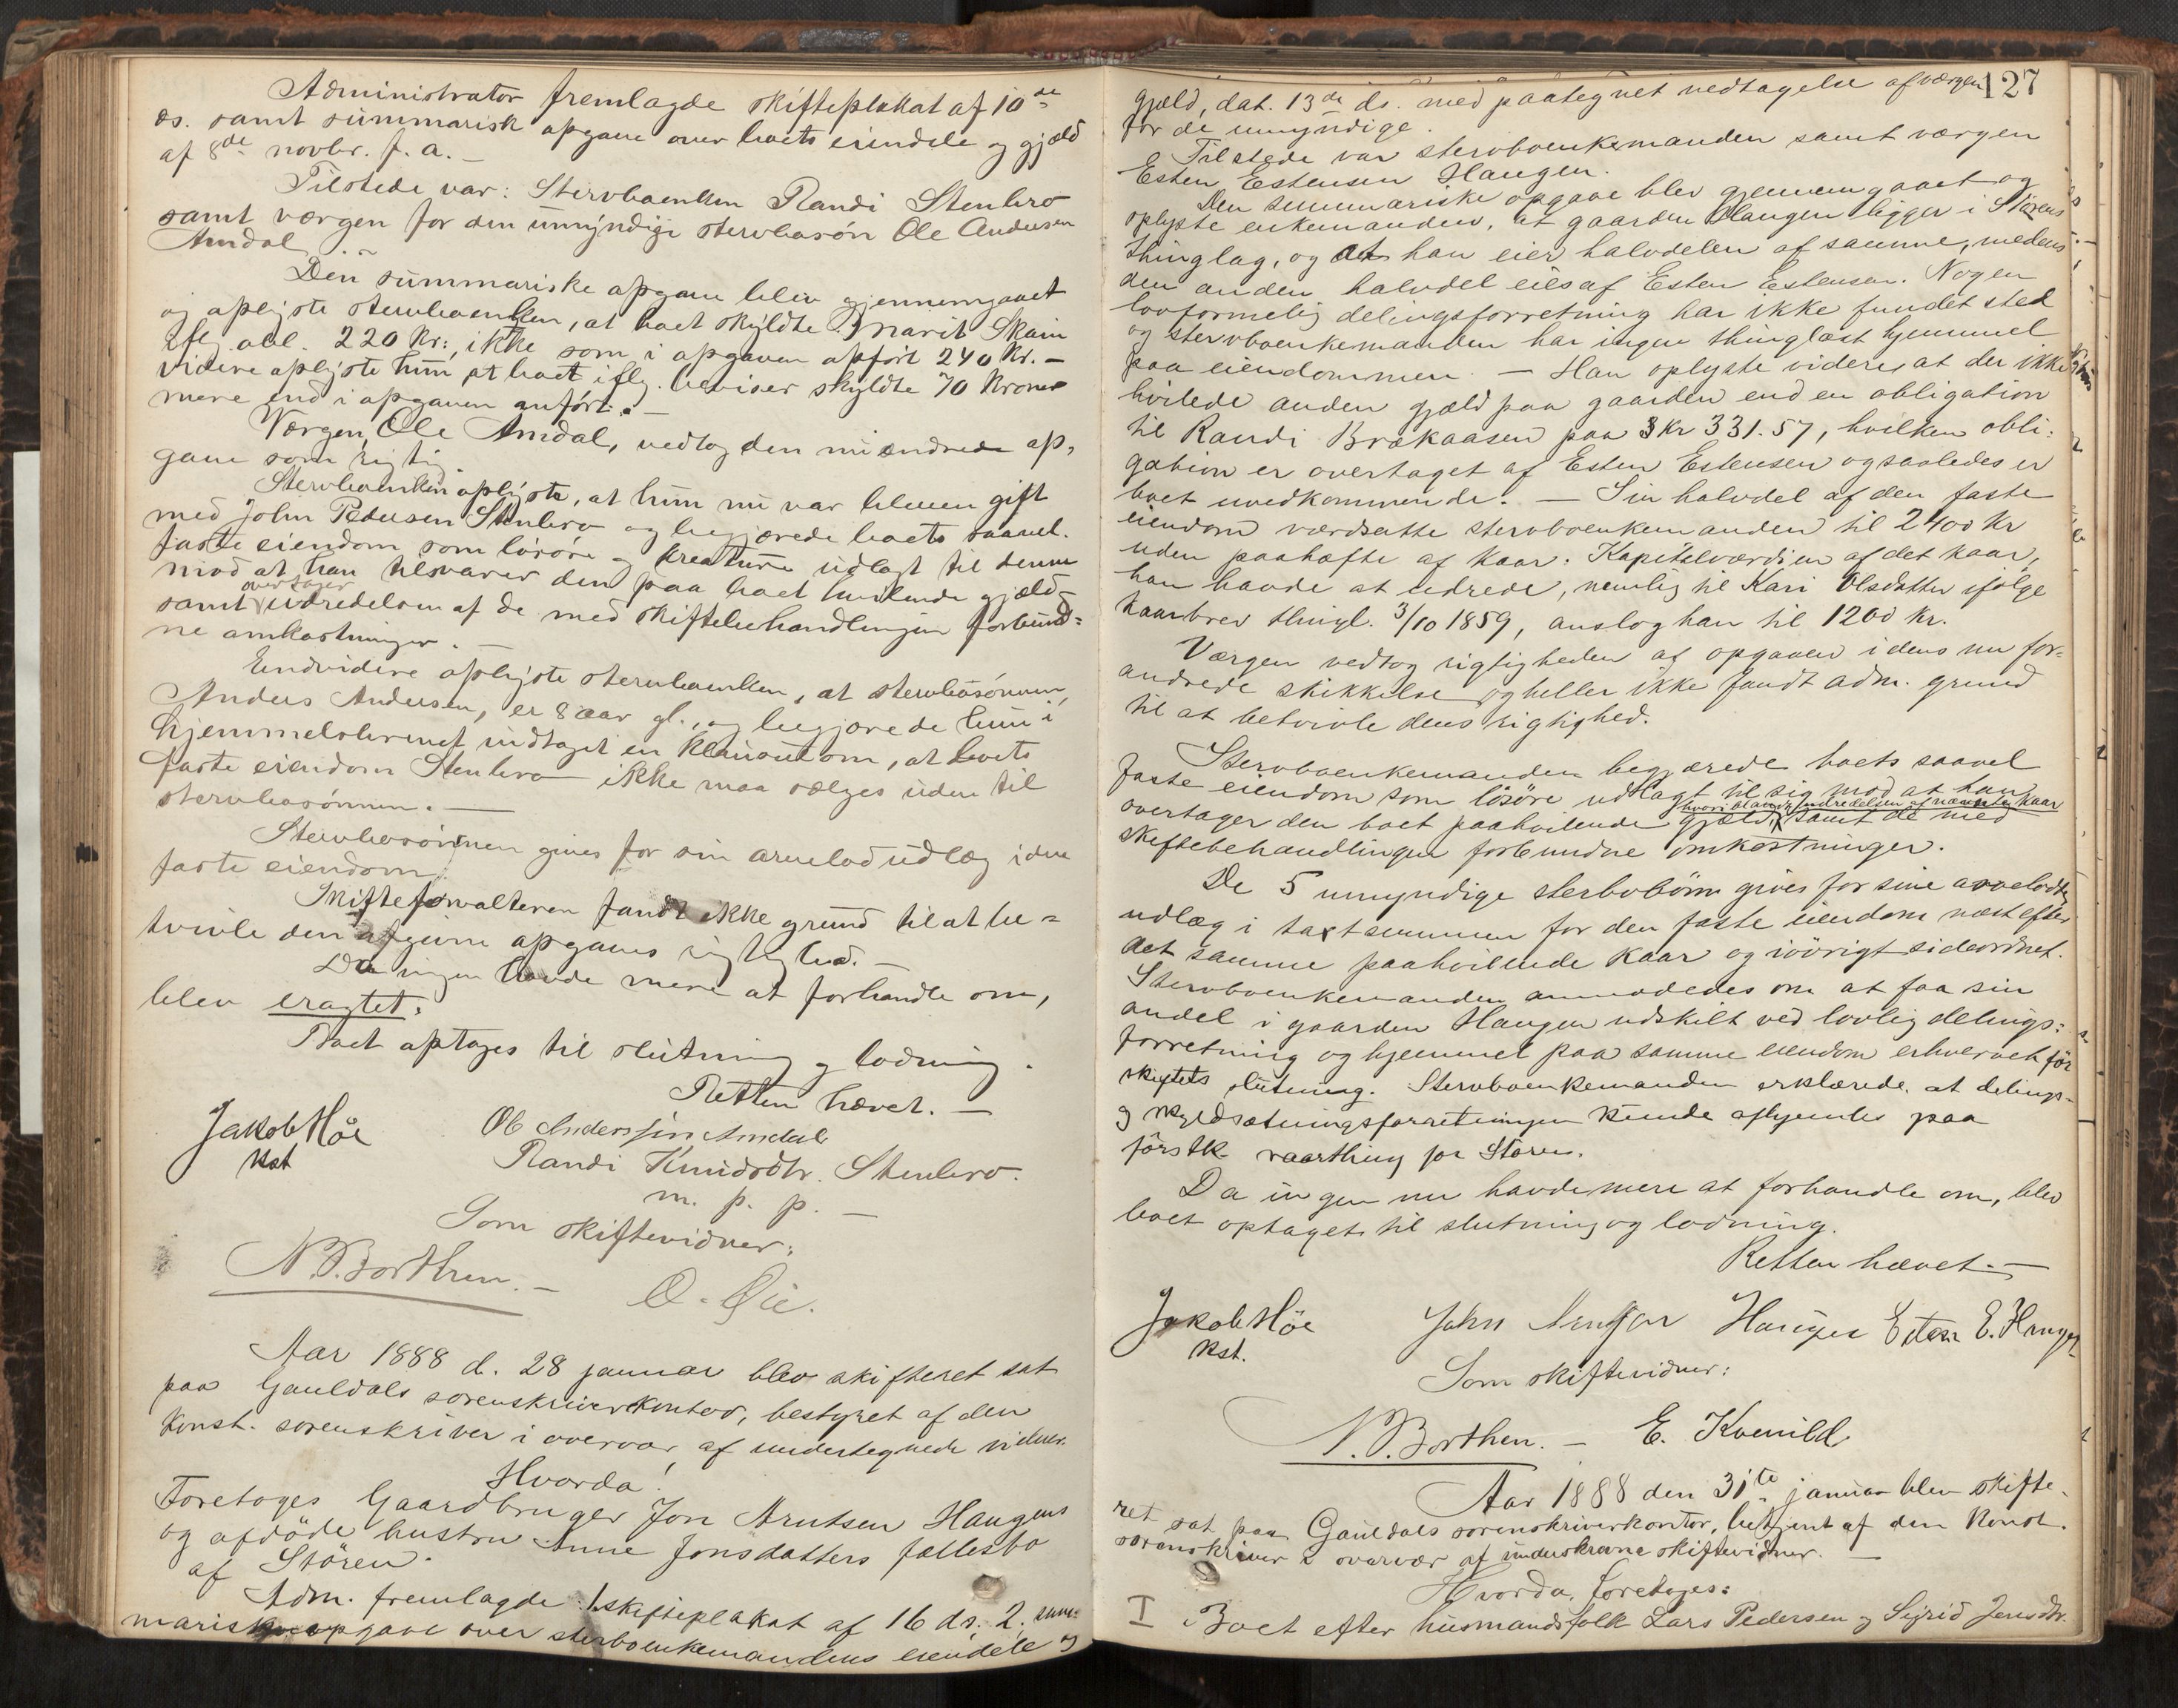 Administrator fremlagde skifteplakat af 10de
ds. samt summarisk opgave over boets eiendele og gjæld
af 8de novbr. f. a. –
Tilstede var: Stervboenken Randi Stenbro
samt værgen for den umyndige stervbosön Ole Andersen
Amdal. –
Den summariske opgave blev gjennemgaaet
og oplyste stervboenken, at boet skyldte Marit Skain
iflg. obl. 220 Kr:, ikke som i opgaven opfört 240 Kr. –
Videre oplyste hun at boet iflg. beviser skyldte 70 Kroner
mere end i opgaven anfört. –
Værgen, Ole Amdal, vedtog den nu ændrede op-
gave som rigtig.
Stervboenken oplyste, at hun nu var bleven gift
med John Pedersen Stenbro og begjærede boets saavel
faste eiendom som lösöre og kreaturer udlagt til denne
mod at han tilsvarer den paa boet hvilende gjæld
samt overtager udredelsen af de med skiftebehandlingen forbund-
ne omkostninger. –
Endvidere oplyste stervboenken, at stervbosönnen,
Anders Andersen, er 8 aar gl., og begjærede hun i
hjemmelsbrevet indtaget en klausul om, at boets
faste eiendom Stenbro ikke maa sælges uden til
stervbosönnen. –
Stervbosönnen gives for sin arvelod udlæg i den
faste eiendom.
Skifteforvalteren fandt ikke grund til at be-
tvivle den afgivne opgaves rigtighed. –
Da ingen havde mere at forhandle om,
blev eragtet:
Boet optages til slutning og lodning.
Retten hævet. –
Jakob Höe
Kst
Ole Anderssen Amdal
Randi Knudsdtr. Stenbro.
m. p. p. –
Som skiftevidner:
N. P. Borthen. – O. Öie.
Aar 1888 d. 28 januar blev skifteret sat
paa Gauldals sorenskriverkontor, bestyret af den
konst. sorenskriver i overvær af undertegnede vidner.
Hvorda!
Foretoges Gaardbruger Jon Arntsen Haugens
og afdöde hustru Anne Jonsdatters fællesbo
af Stören.
Adm. fremlagde 1. skifteplakat af 16 ds. 2. sum-
marisk opgave over sterboenkemandens eiendele og
127
gjæld, dat. 13de ds. med paategnet vedtagelse af værgen
for de umyndige.
Tilstede var stervboenkemanden samt værgen
Esten Estensen Haugen.
Den summariske opgave blev gjennemgaaet og
oplyste enkemanden, at gaarden Haugen ligger i Störens
thinglag, og at han eier halvdelen af samme, medens
den anden halvdel eies af Esten Estensen. Nogen
lovformelig delingsforretning har ikke fundet sted
og stervboenkemanden har ingen thinglæst hjemmel
paa eiendommen. – Han oplyste videre, at der ikke
hvilede anden gjæld paa gaarden end en obligation
til Randi Brækaasen paa 3 Kr 331.57, hvilken obli-
gation er overtaget af Esten Estensen og saaledes er
boet uvedkommende. – Sin halvdel af den faste
eiendom værdsatte stervboenkemanden til 2400 Kr
uden paahæfte af kaar. Kapitalværdien af det kaar,
han havde at udrede, nemlig til Kari Olsdatter ifölge
kaarbrev thingl. 3/10 1859, anslog han til 1200 Kr.
Værgen vedtog rigtigheden af opgaven i dens nu for-
andrede skikkelse og heller ikke fandt adm. grund
til at betvivle dens rigtighed.
Stervboenkemanden begjærede boets saavel
faste eiendom som lösöre udlagt til sig mod at han
overtager den boet paahvilende gjæld, hvoriblandt udredelsen af nævnte kaar samt de med
skiftebehandlingen forbundne omkostninger.
De 5 umyndige sterbobörn gives for sine arvelodde
udlæg i taxtsummen for den faste eiendom næst efter
det samme paahvilende kaar og iövrigt sideordnet.
Stervboenkemanden anmodedes om at faa sin
andel i gaarden Haugen udskilt ved lovlig delings-
forretning og hjemmel paa samme eiendom erhvervet för
skiftets slutning. Stervboenkemanden erklærede at delings-
og skyldsætningsforretningen kunde afhjemles paa
förstk. vaarthing for Stören.
Da ingen nu havde mere at forhandle om, blev
boet optaget til slutning og lodning.
Retten hævet. –
Jakob Höe
Kst.
John Arntsen Haugen Esten E. Haugen
Som skiftevidner:
N. P. Borthen. – E. Kvenild
Aar 1888 den 31te januar blev skifte-
ret sat paa Gauldals sorenskriverkontor, betjent af den konst.
sorenskriver i overvær af underskrevne skiftevidner. –
Hvorda, foretoges:
I Boet efter husmandsfolk Lars Pedersen og Sigrid Jensdtr.